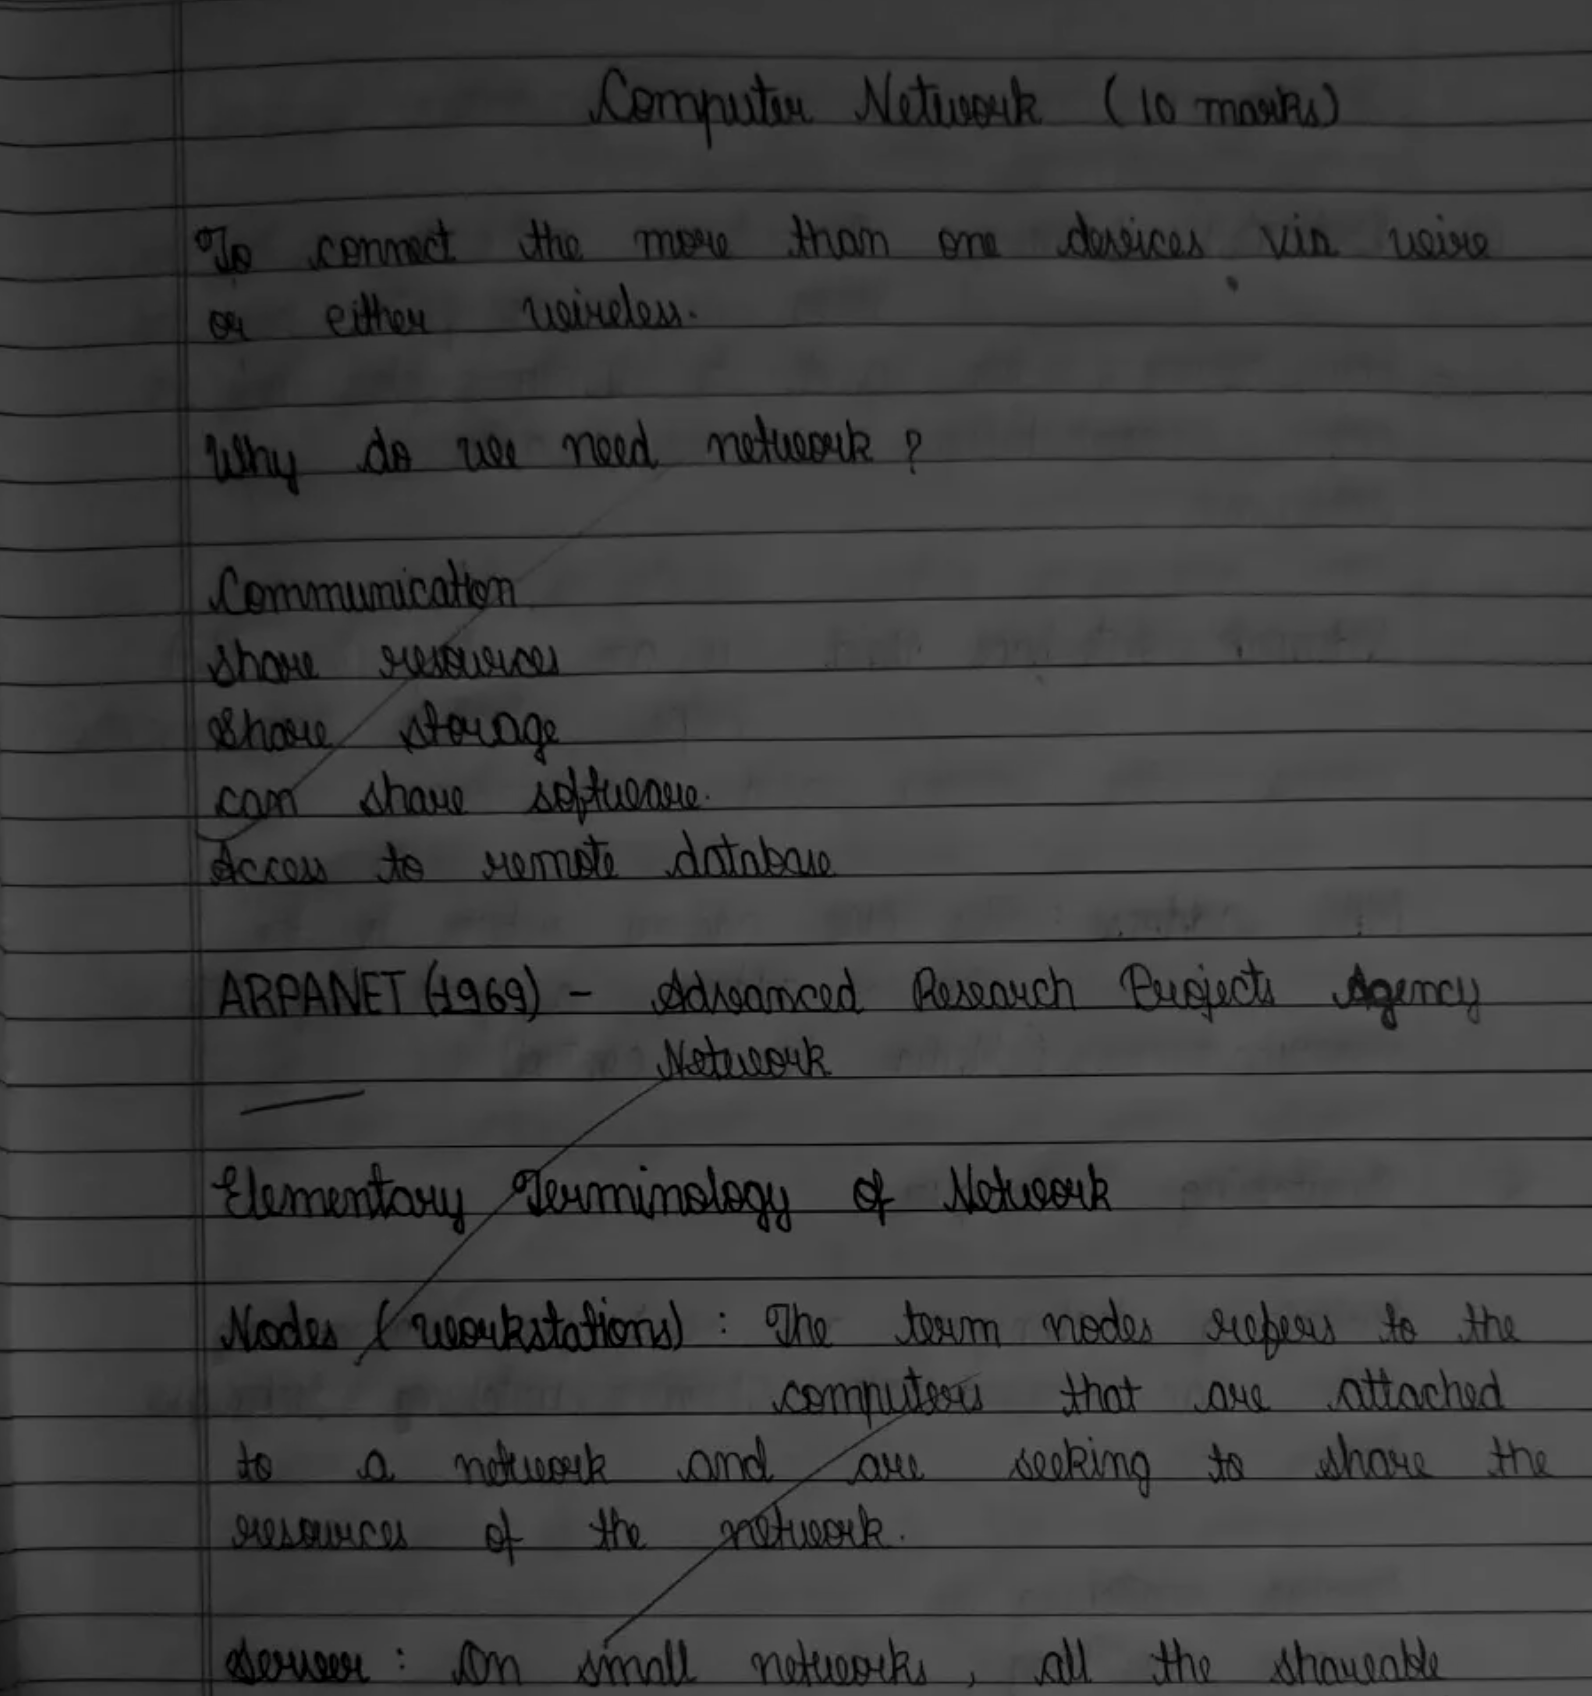 Computer Network (10 marks)
To connect the more than one devices via wire
or either wireless.
Why do we need network ?
Communication
Share resources
Share storage
can share software.
Access to remote database
ARPANET (1969) - Advanced Research Projects Agency
Network
Elementary Terminology of Network
Nodes (workstations) : The term nodes refers to the
computers that are attached
to a network and are seeking to share the
resources of the network.
Server : On small networks, all the shareable